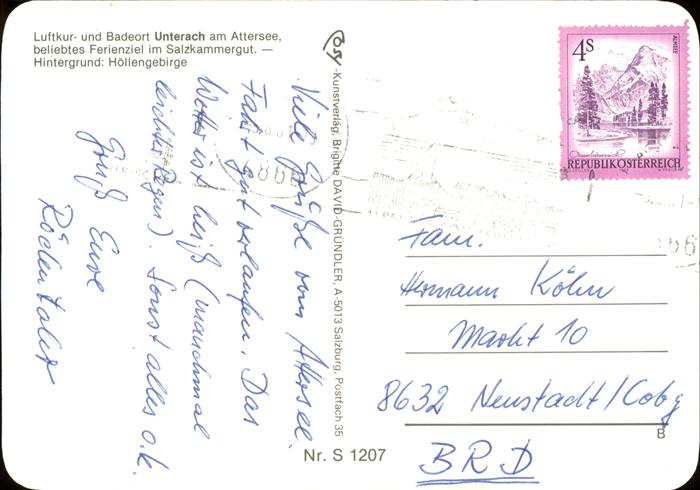 Luftkur- und Badeort Unterach am Attersee,
beliebtes Ferienziel im Salzkammergut. —
Hintergrund: Höllengebirge
Viele Grüße vom Attersee.
Fahrt gut verlaufen. Das
Wetter ist heiß (manchmal
leichter Regen). Sonst alles o.k.
Gruß Eure
Rödentaler
-Kunstverlag, Brigitte DAVID-GRÜNDLER, A-5013 Salzburg, Postfach 35
Nr. S 1207
4S
ALMSEE
REPUBLIK ÖSTERREICH
Fam.
Hermann Köhn
Markt 10
8632 Neustadt/Cobg
B
BRD